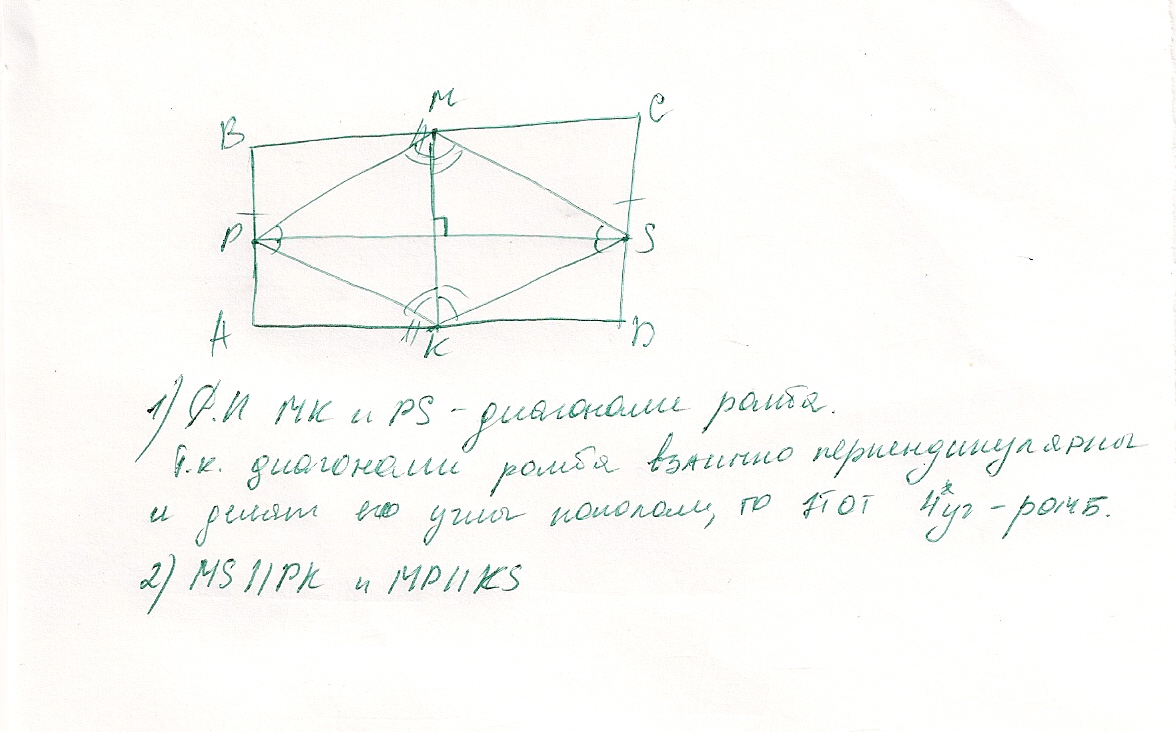 M
C
B
P
S
A
K
D
1) Д.П MK и PS - диагонали ромба.
Т.к. диагонали ромба взаимно перпендикулярны
и делят его углы пополам, то этот 4х уг - ромб.
2) MS || PK и MP || KS